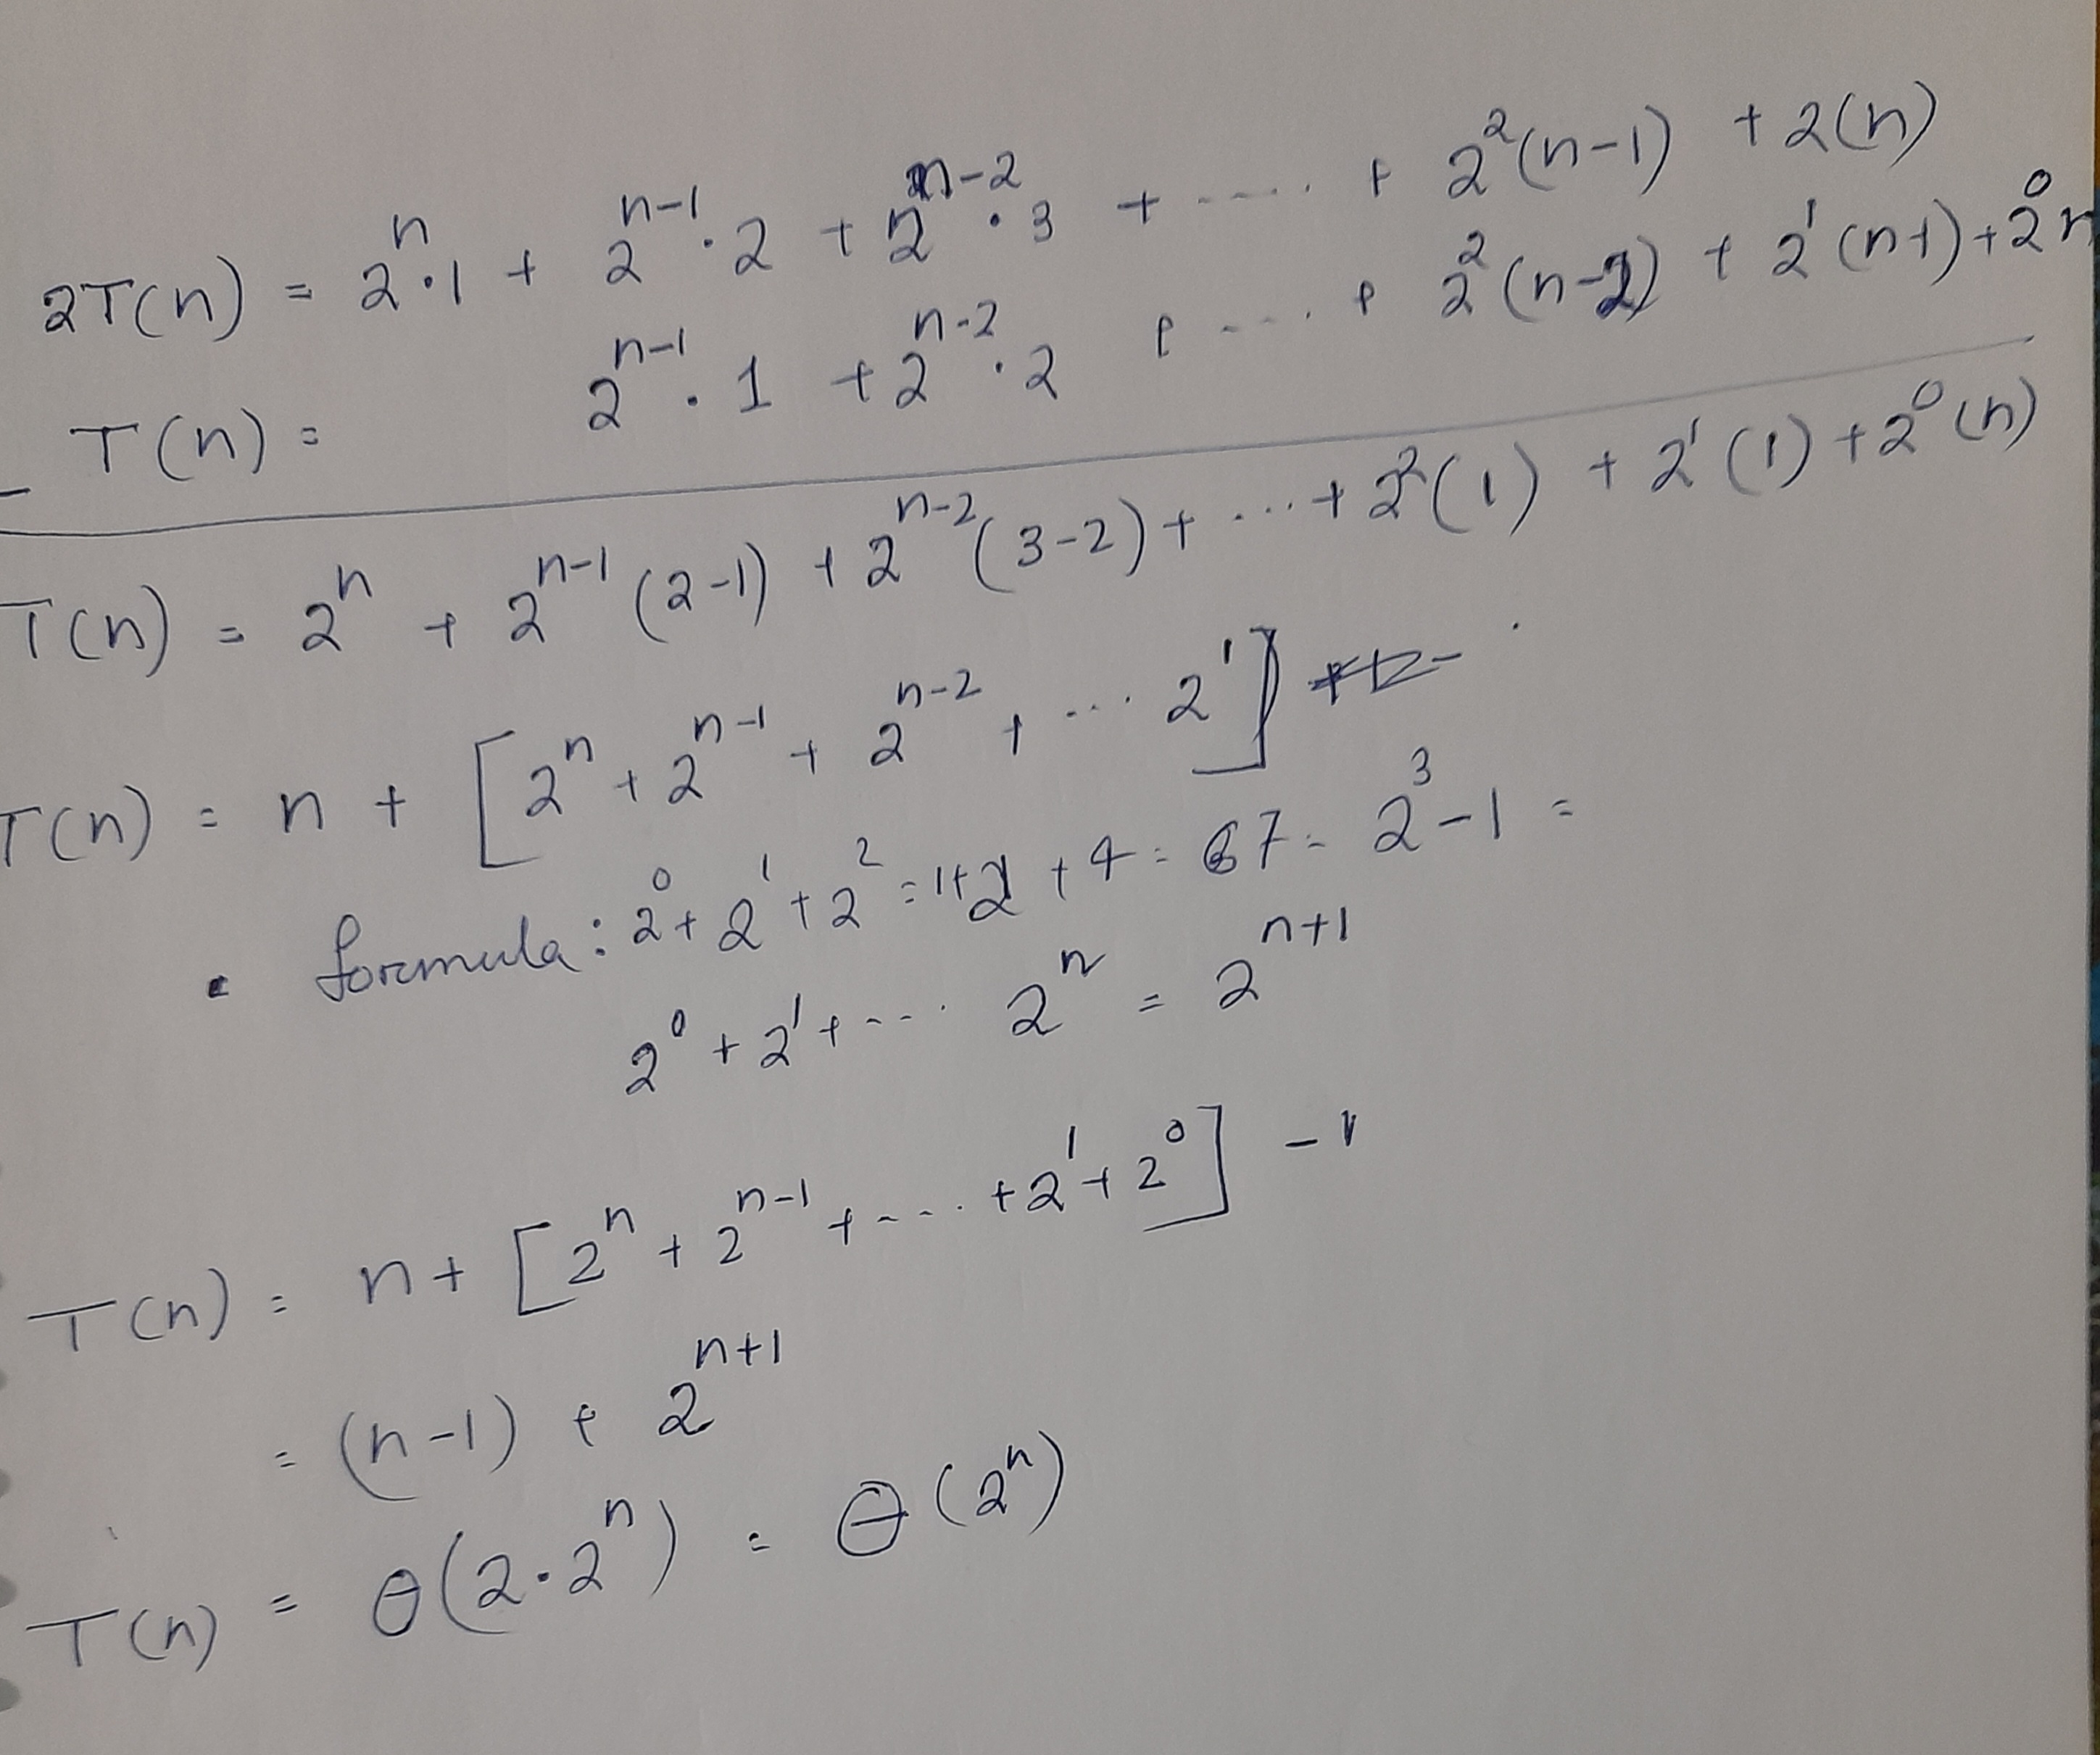 2T(n) = 2^n·1 + 2^{n-1}·2 + 2^{n-2}·3 + ---- + 2^2(n-1) + 2(n)
- T(n) = 2^{n-1}·1 + 2^{n-2}·2 + ---- + 2^2(n-2) + 2^1(n-1) + 2^0 n
T(n) = 2^n + 2^{n-1}(2-1) + 2^{n-2}(3-2) + ... + 2^2(1) + 2^1(1) + 2^0(n)
T(n) = n + [2^n + 2^{n-1} + 2^{n-2} + ... 2^1]
• formula: 2^0 + 2^1 + 2^2 = 1+2+4 = 7 = 2^3-1 =
2^0 + 2^1 + ---- 2^n = 2^{n+1}
T(n) = n + [2^n + 2^{n-1} + ---- + 2^1 + 2^0] - 1
= (n-1) + 2^{n+1}
T(n) = θ(2·2^n) = θ(2^n)